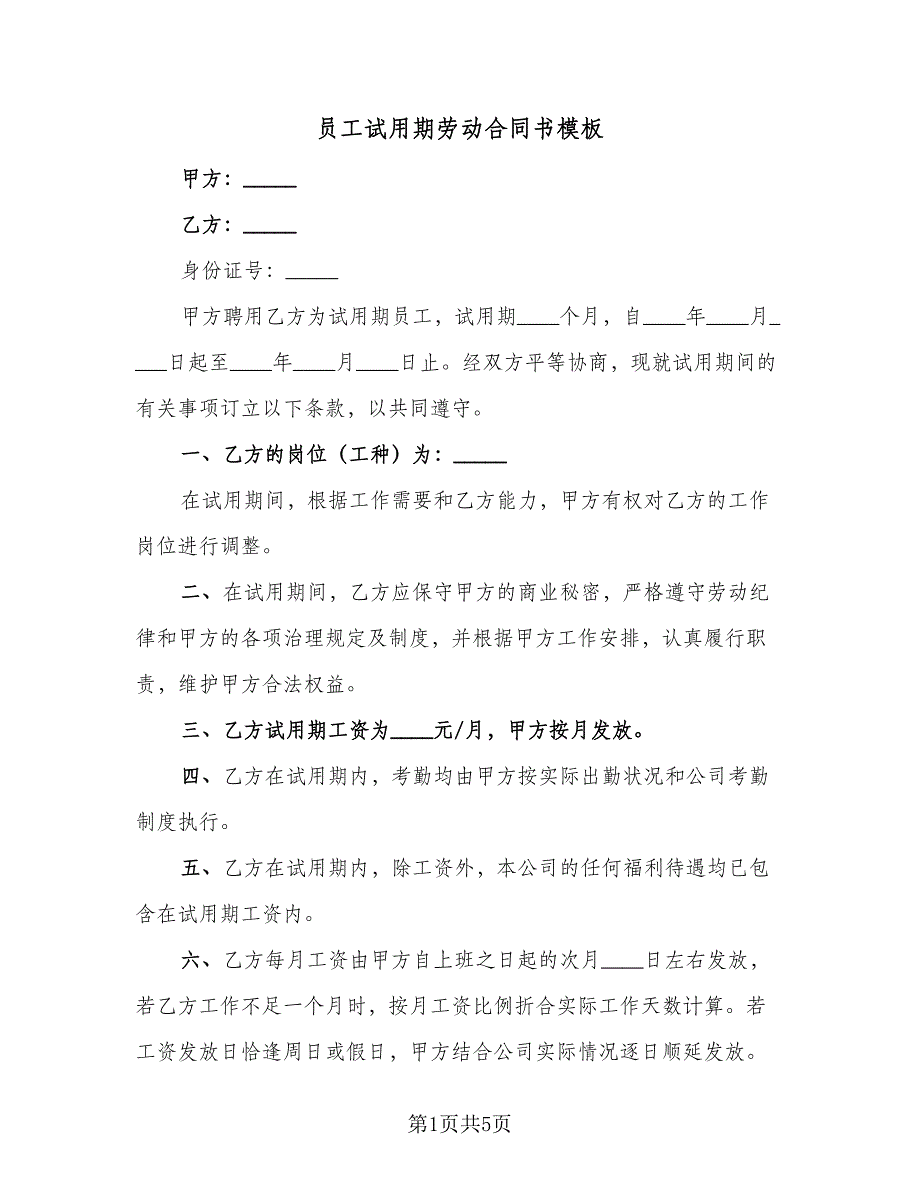 员工试用期劳动合同书模板
甲方：_____
乙方：_____
身份证号：_____
甲方聘用乙方为试用期员工，试用期____个月，自____年____月_
___日起至____年____月____日止。经双方平等协商，现就试用期间的
有关事项订立以下条款，以共同遵守。
一、乙方的岗位（工种）为：_____
在试用期间，根据工作需要和乙方能力，甲方有权对乙方的工作
岗位进行调整。
二、在试用期间，乙方应保守甲方的商业秘密，严格遵守劳动纪
律和甲方的各项治理规定及制度，并根据甲方工作安排，认真履行职
责，维护甲方合法权益。
三、乙方试用期工资为____元/月，甲方按月发放。
四、乙方在试用期内，考勤均由甲方按实际出勤状况和公司考勤
制度执行。
五、乙方在试用期内，除工资外，本公司的任何福利待遇均已包
含在试用期工资内。
六、乙方每月工资由甲方自上班之日起的次月____日左右发放，
若乙方工作不足一个月时，按月工资比例折合实际工作天数计算。若
工资发放日恰逢周日或假日，甲方结合公司实际情况逐日顺延发放。
第1页共5页